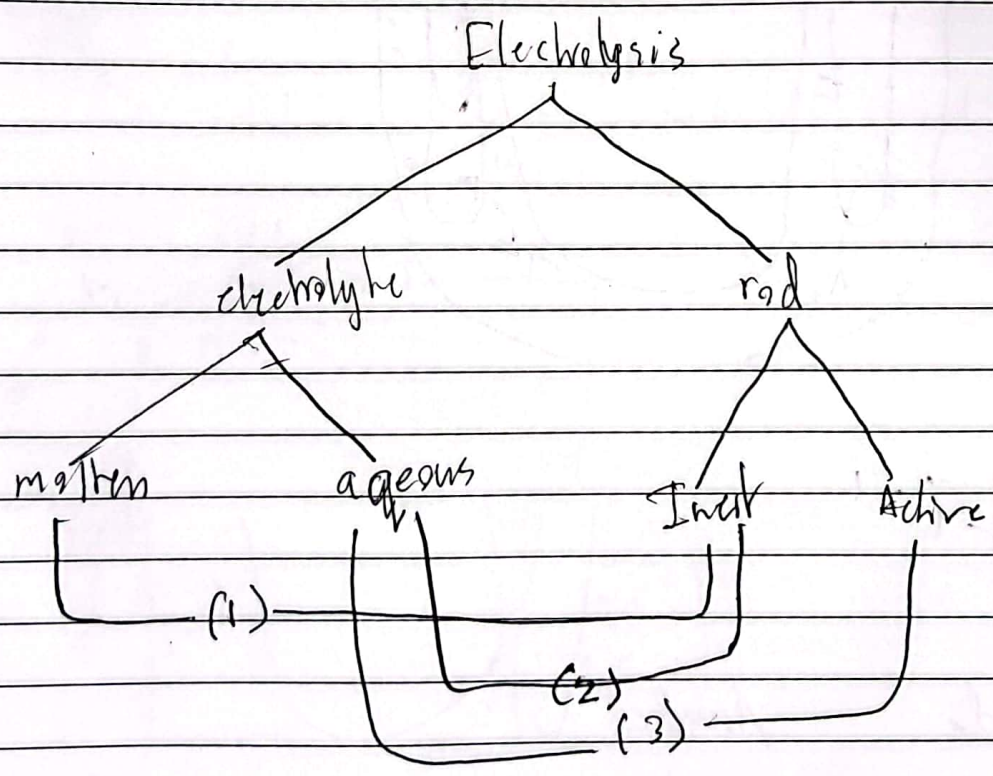 Electrolysis
electrolyte rod
molten aqeous Inert Active
(1)
(2)
(3)